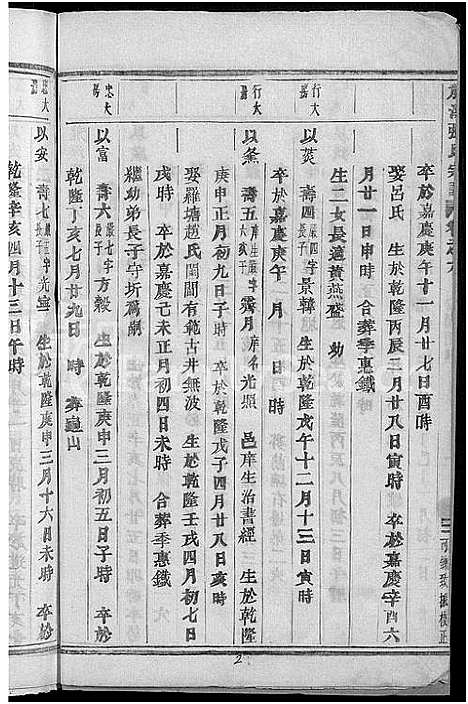 卒於嘉慶庚午十一月廿七日酉時
娶呂氏 生於乾隆丙辰三月廿八日寅時 卒於嘉慶辛酉六
月廿一日申時 合葬季惠鐵
生二女長適黃燕登 幼
行大
以莢 壽四 字景韓 生於乾隆戊午十二月十三日寅時
長子
卒於嘉慶庚午 月 日 時
行大
以夆 壽五 字霽月 庠名光照 邑庠生治書經 生於乾隆
庚申正月初九日子時 卒於乾隆戊子四月廿八日亥時
娶羅塘趙氏閨閫有範古井無波 生於乾隆壬戌四月初七日
戌時 卒於嘉慶己未正月初四日未時 合葬季惠鐵 穴
繼幼弟長子守圻為嗣
忠大
以富 壽六 字方穀 生於乾隆庚申三月初五日子時 卒於
長子
乾隆丁亥七月廿九日 時 葬龜山
忠大
以安 壽七 字光寧 生於乾隆庚申三月十六日未時 卒於
長子
乾隆辛亥四月十三日午時
2